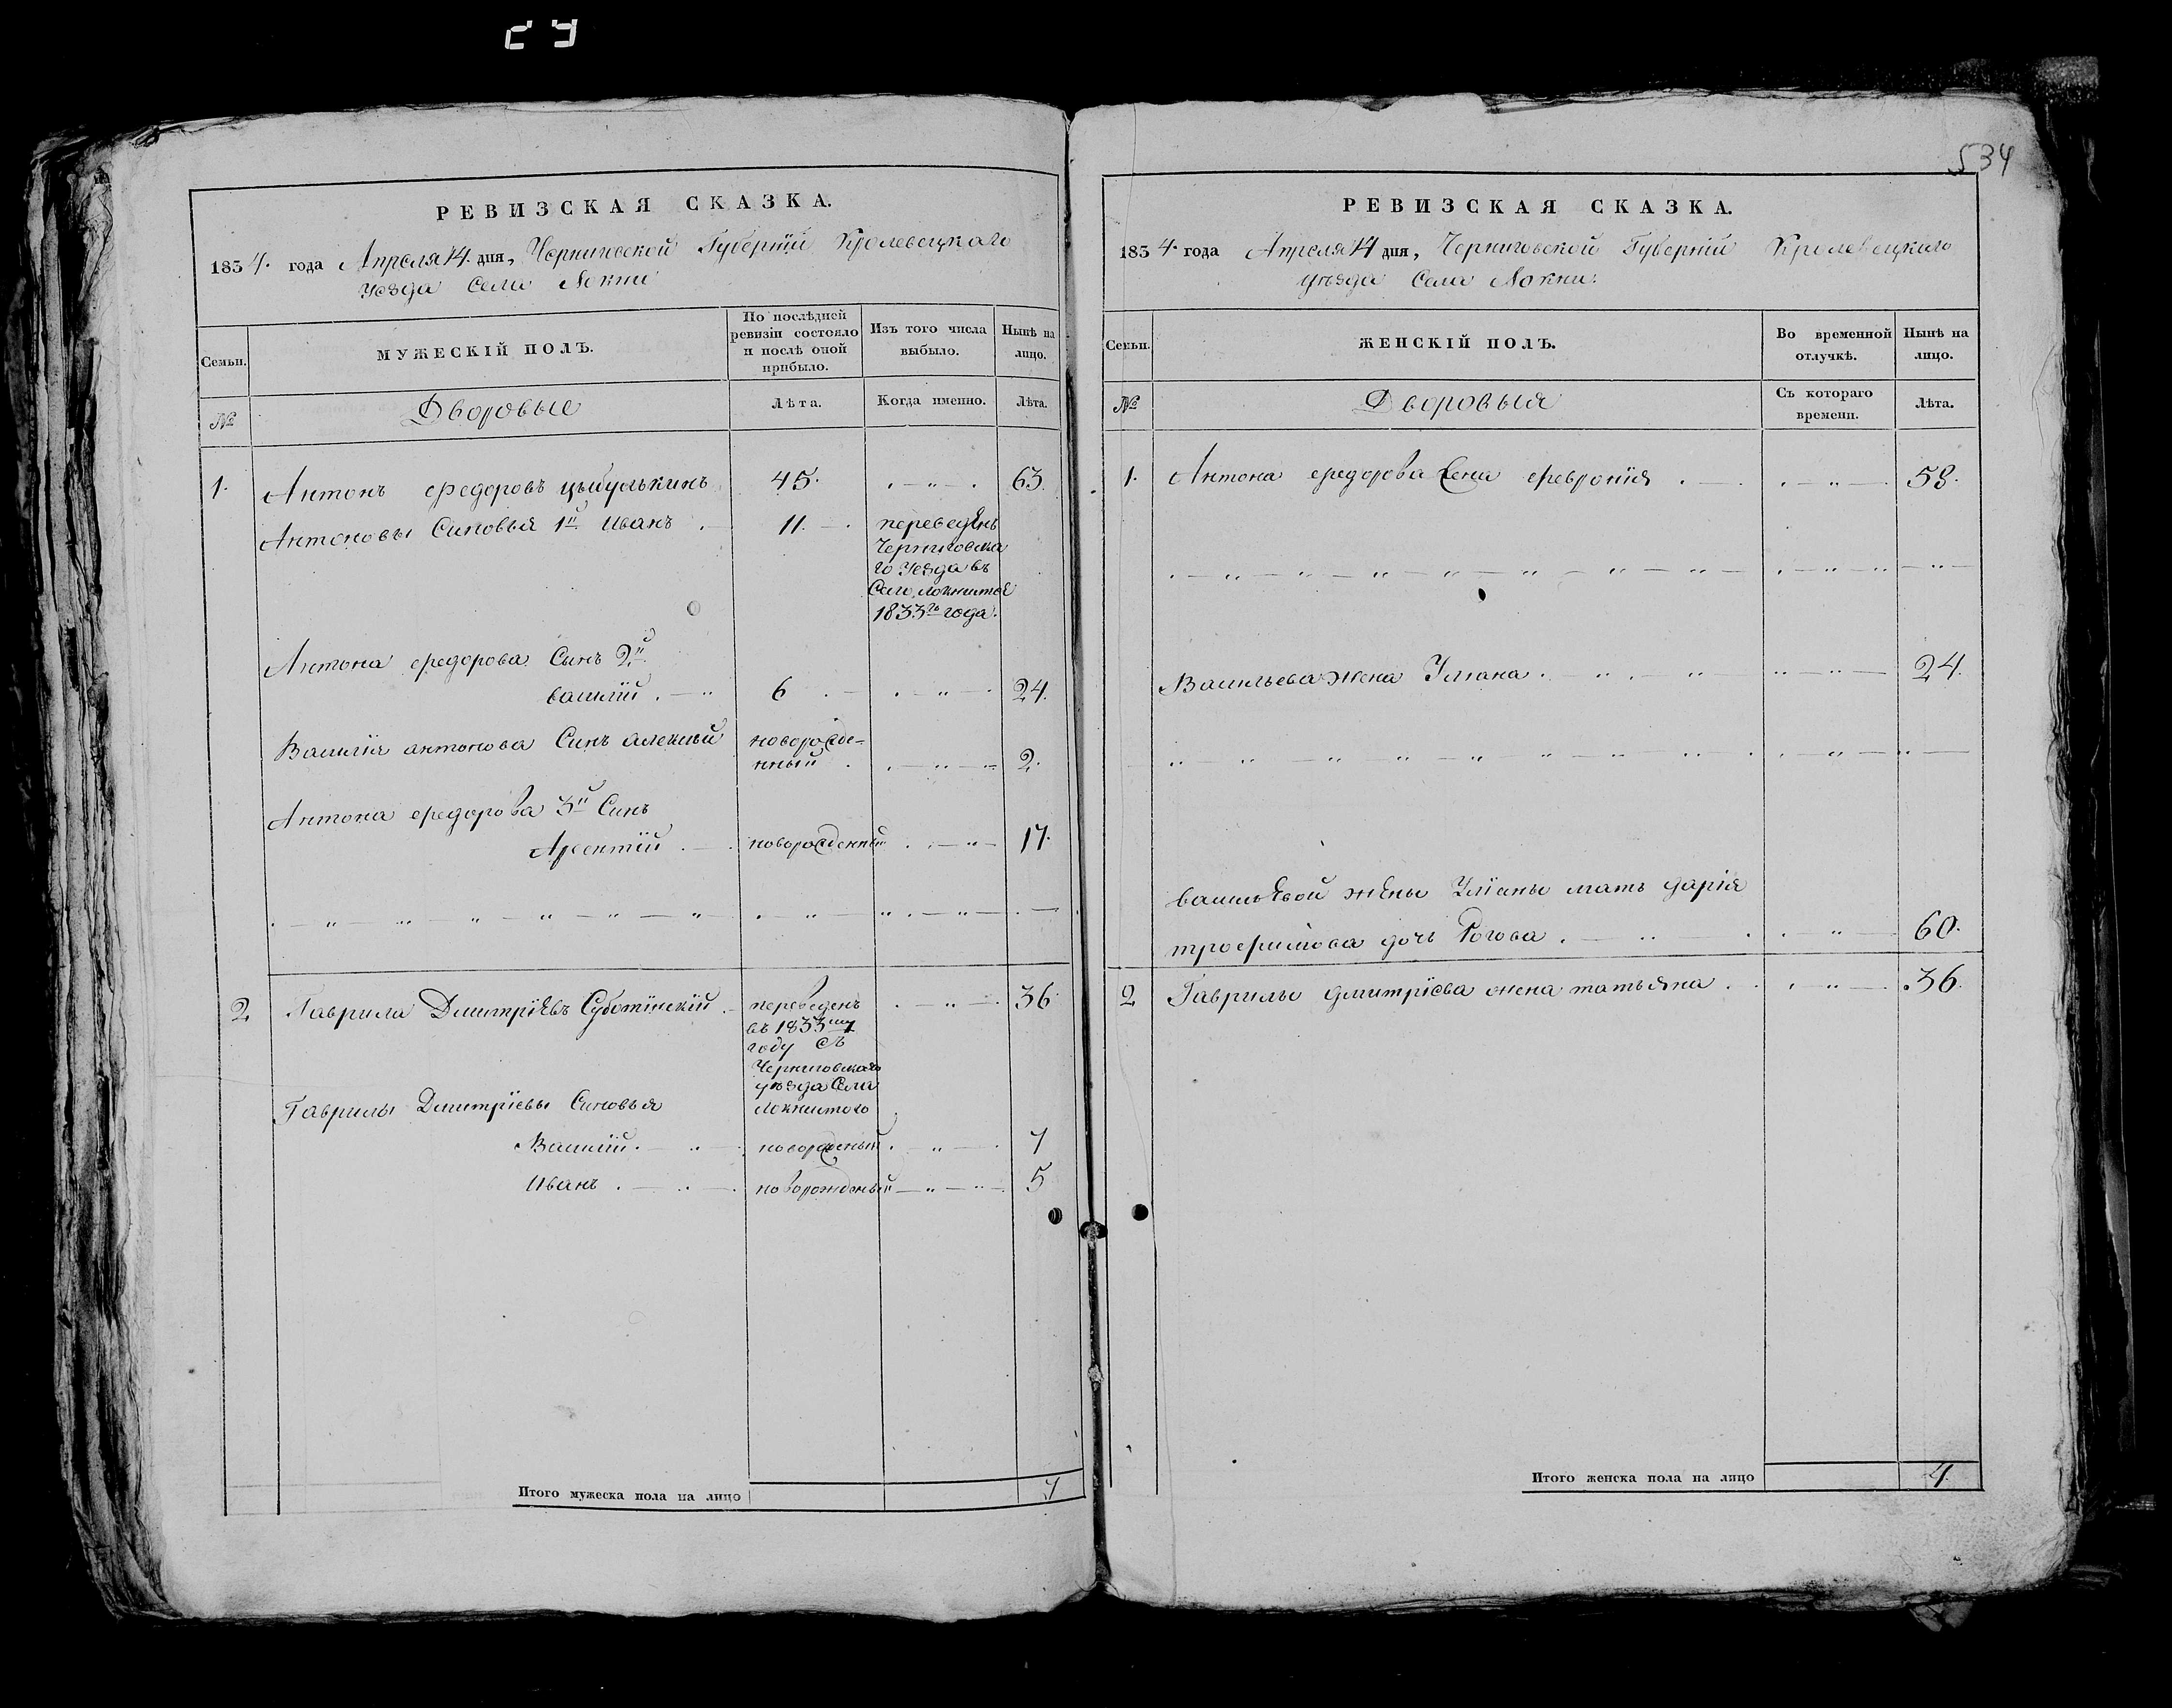 534
РЕВИЗСКАЯ СКАЗКА.
1834. года Апреля 14. дня, Черниговской Губернїи Кролевецкаго
уезда Села Локни
Семьи.
МУЖЕСКІЙ ПОЛЪ.
По послѣдней
ревизіи состояло
и послѣ оной
прибыло.
Изъ того числа
выбыло.
Нынѣ на
лицо.
№
Дворовые
Лѣта.
Когда именно.
Лѣта.
1. Антонъ Федоровъ цыбулькинъ 45. 63.
Антоновы Синовья 1й Иванъ 11.
переведенъ
Черниговска
го уезда въ
Село Локнистое
1833го года.
Антона Федорова Сынъ 2й
василїй 6 24.
Василїя антонова Синъ алексѣй
новорожде-
нный 2.
Антона Федорова 3й Синъ
Арсентїй новорожденный 17.
2 Гаврила Дмитрїевъ Суботїнскїй 36
переведенъ
въ 1833му
году съ
Черниговскаго
уѣзда Села
Локнистого
Гаврилы Дмитрїевы Синовья
Василїй новорожденый 7
Иванъ новорожденый 5
Итого мужеска пола на лицо 7
РЕВИЗСКАЯ СКАЗКА.
1834. года Апреля 14 дня, Черниговской Губернїи Кролевецкаго
уѣзда Села Локни.
Семьи.
ЖЕНСКІЙ ПОЛЪ.
Во временной
отлучкѣ.
Нынѣ на
лицо.
№
Дворовыя
Съ котораго
времени.
Лѣта.
1. Антона Федорова жена Феврония 58.
Васильева жена Улїана 24.
васильевой жены Улїаны мать дарїя
трофимова дочь Рогова 60.
2 Гаврилы дмитрїева жена татьяна 36.
Итого женска пола на лицо 4.